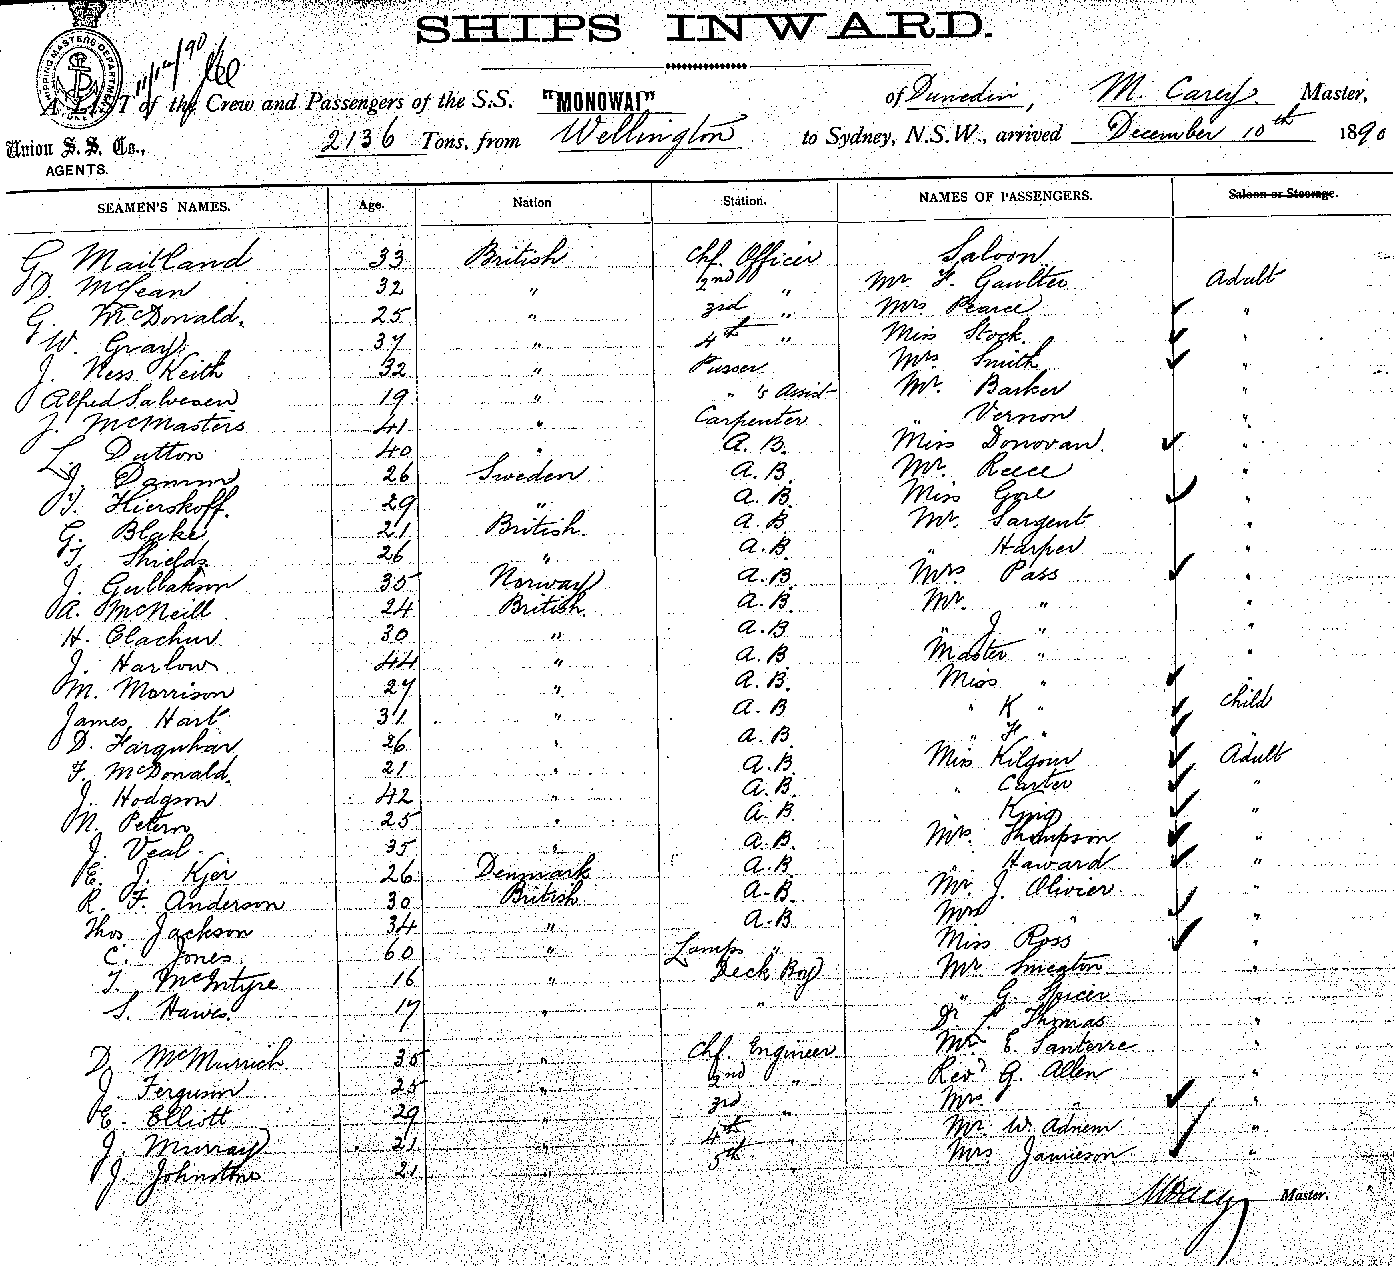 SHIPS INWARD.
SHIPPING MASTERS DEPARTMENT
11/12/90
A LIST of the Crew and Passengers of the S.S. "MONOWAI" of Dunedin, M. Carey Master,
Union S. S. Co., AGENTS. 2136 Tons, from Wellington to Sydney, N.S.W., arrived December 10th 1890
SEAMEN'S NAMES. Age. Nation Station. NAMES OF PASSENGERS. Saloon or Steerage.
G Maitland 33 British Chf. Officer Saloon
D. McLean 32 " 2nd " Mr F. Gaulter Adult
G. McDonald. 25 " 3rd " Mrs Pearce "
W. Gray 37 " 4th " Miss Stock. "
J. Ness Keith 32 " Purser Mrs Smith "
Alfred Salvesen 19 " " 's Assist Mr. Barker "
J. McMasters 41 " Carpenter Vernon "
L. Dutton 40 " A. B. Miss Donovan. "
J. Damm 26 Sweden A. B. Mr. Reece "
T. Hierskoff. 29 " A. B. Miss Gore "
G. Blake 21 British. A. B. Mr. Sargent "
T. Shields 26 " A. B. " Harper "
J. Gullakson 35 Norway A. B. Mrs Pass "
A. McNeill 24 British. A. B. Mr. " "
H. Clachur 30 " A. B. " J " "
J. Harlow 44 " A. B. Master " "
M. Morrison 27 " A. B. Miss " "
James Hart 31 " A. B. " K " Child
D. Farquhar 26 " A. B. " F " "
F. McDonald. 21 " A. B. Miss Kilgour Adult
J. Hodgson 42 " A. B. " Carter "
M. Peters 25 " A. B. King "
J. Veal. 35 " A. B. Mrs. Thompson "
E. J. Kjer 26 Denmark A. B. " Haward "
R. F. Anderson 30 British A. B. Mr J. Olivier "
Thos Jackson 34 " A. B. Mrs " "
C. Jones 60 " Lamps " Miss Ross "
T. McIntyre 16 " Deck Boy Mr Smeaton "
S. Hawes. 17 " " " G. Spicer "
Dr Thomas "
D. McMurrich 35 " Chf. Engineer Mr E. Santerre "
J. Ferguson 25 " 2nd " Revd G. Allen "
E. Elliott 29 " 3rd " Mrs " "
J. Murray 21 " 4th " Mr W. Adnem "
J. Johnstone 21 " 5th " Mrs Jamieson "
MCarey Master.